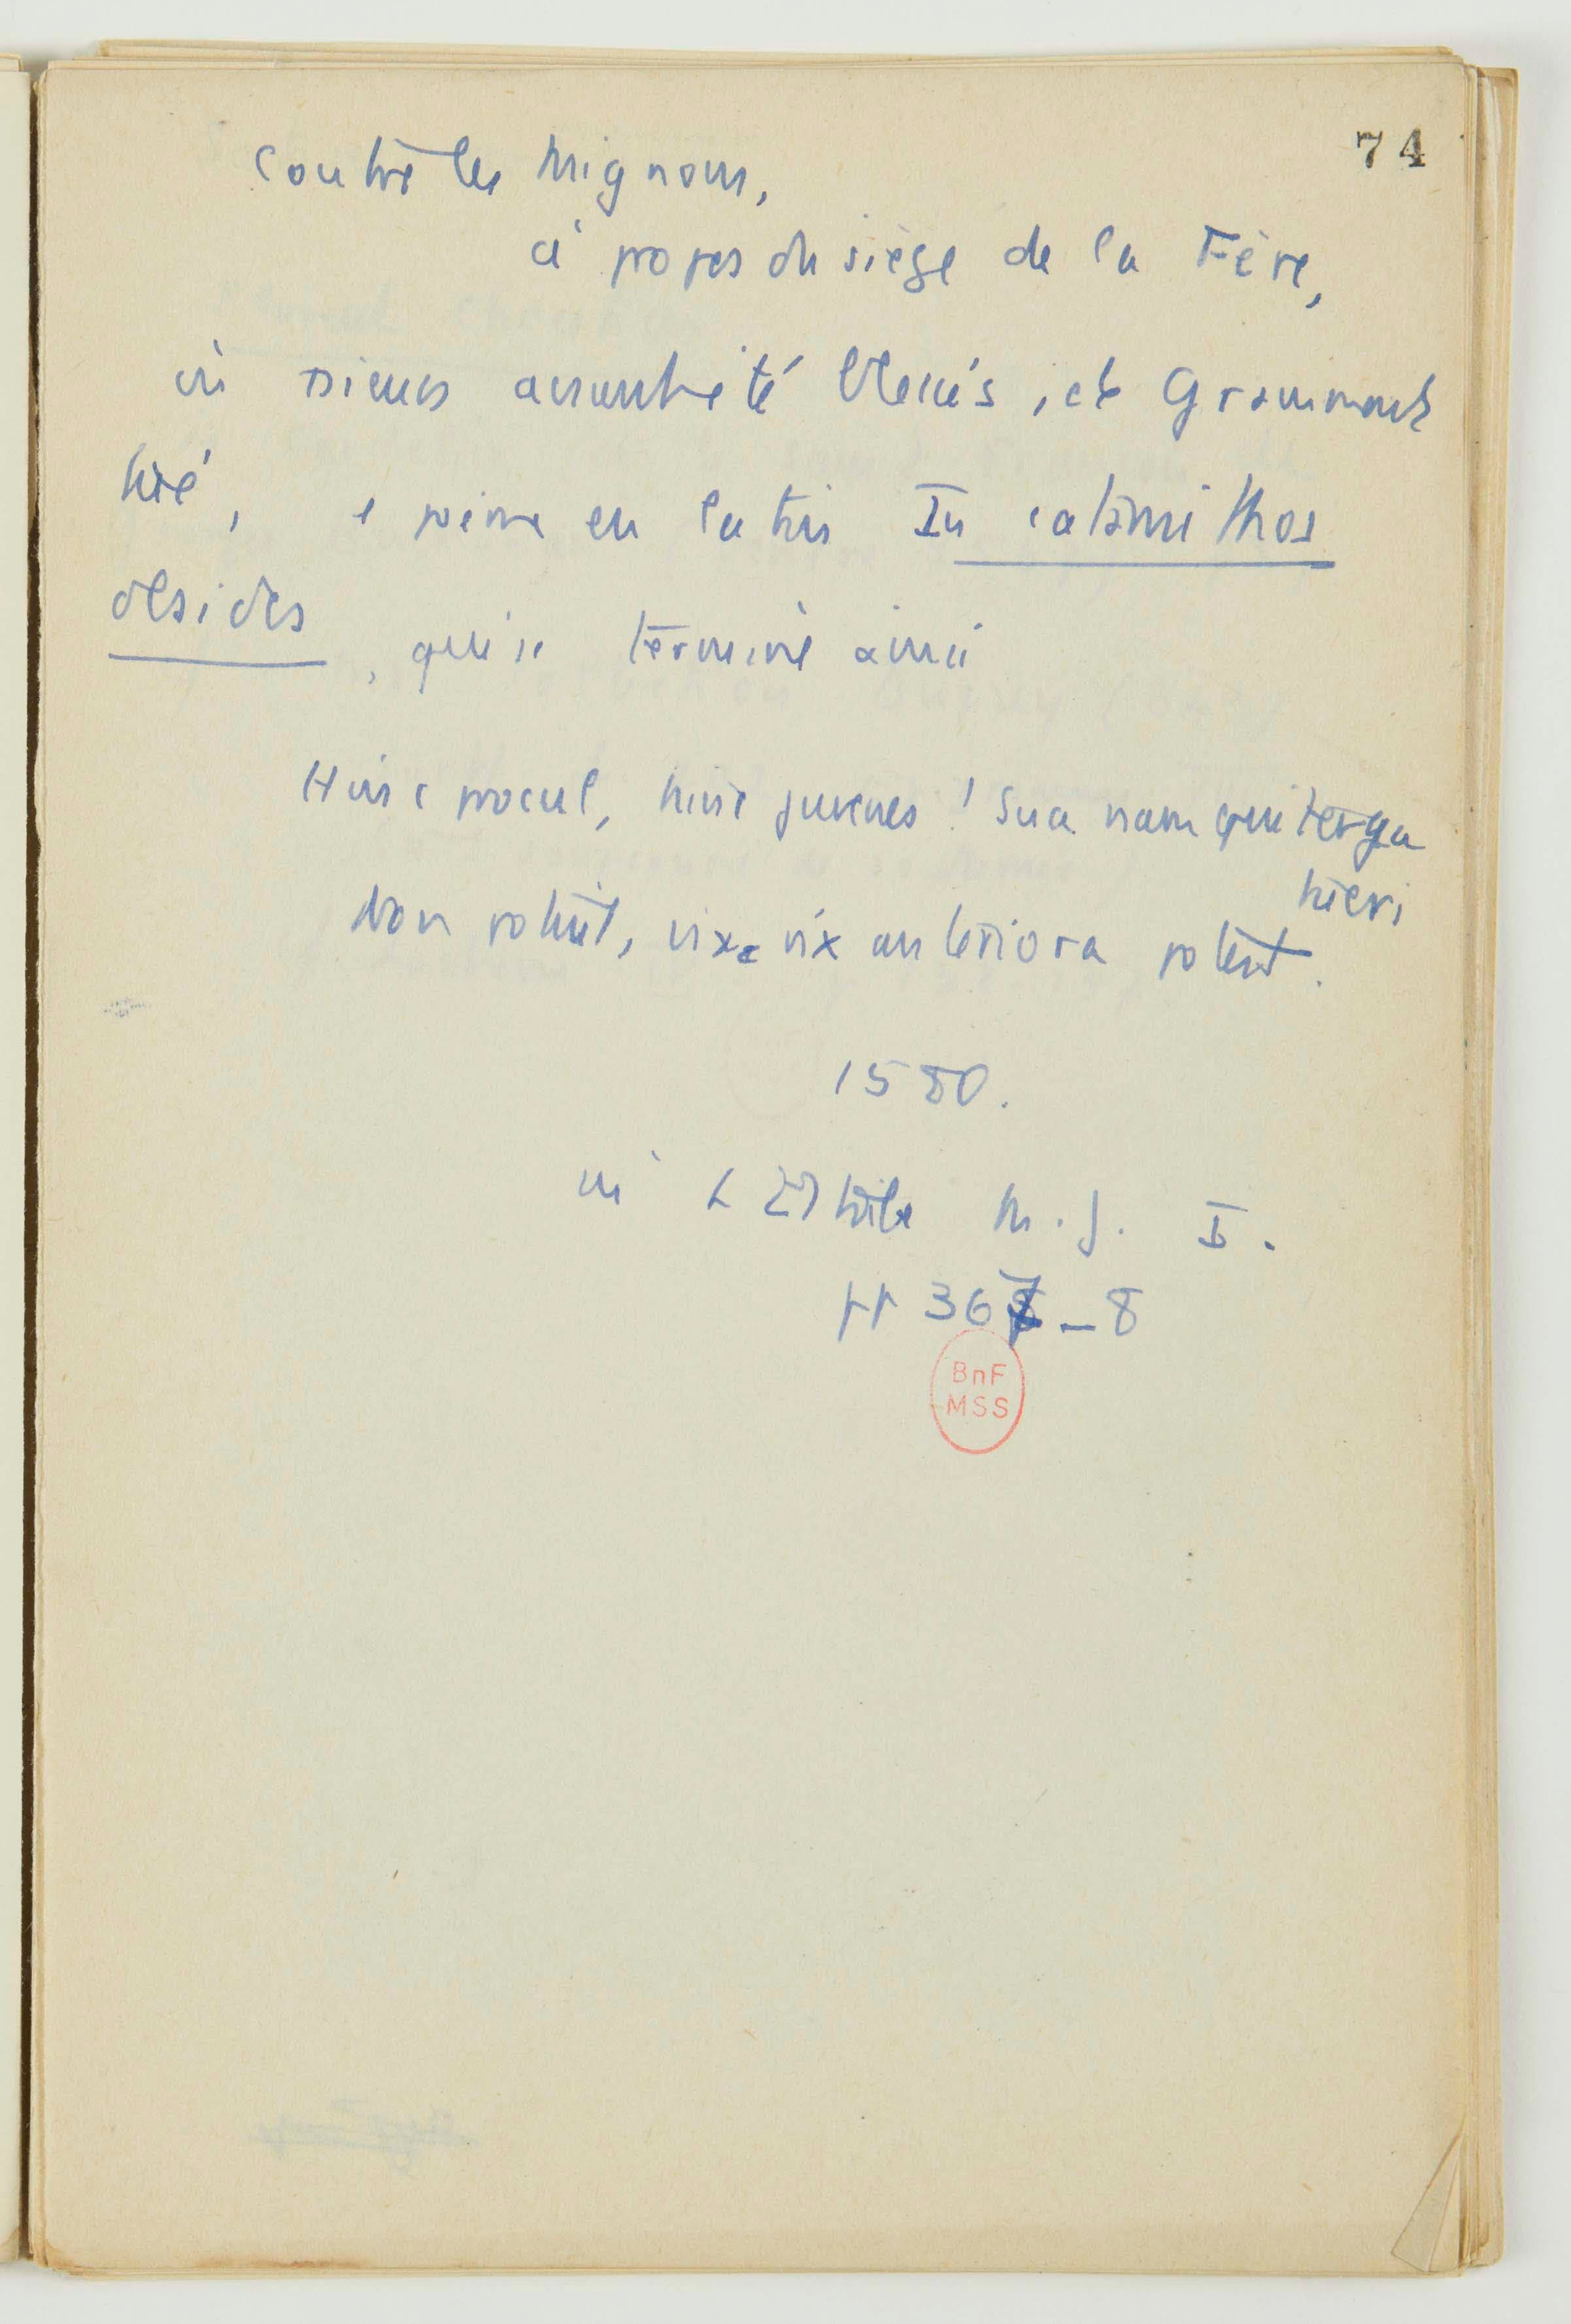 74
Contre les Mignons,
à propos du siège de la Fère,
où avaient été blessés, et Grammont
tué, pième en latin In catamithos
desides, qui se termine ainsi
Hinc procul, hinc juvenes ! Sua nam qui terga
tueri
Non potuit, vix vix anteriora potest.
1580.
in L M.J. I.
pp 367-8
BnF
MSS